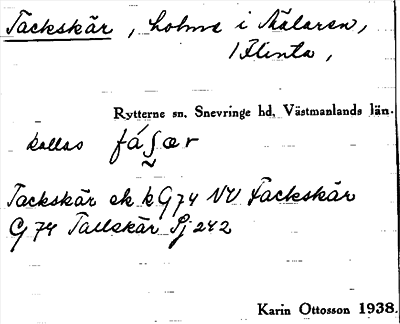 Tackskär, holme i Mälaren,
1 Flinta,
Rytterne sn. Snevringe hd, Västmanlands län.
kallas
Tackskär ek k G 74 NV Tackskär
G 74 Tallskär Sj 242
Karin Ottosson 1938.